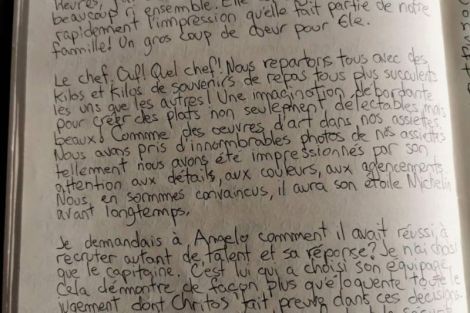 heures, j'ai
beaucoup ri ensemble. Elle
rapidement l'impression qu'elle fait partie de notre
famille! Un gros coup de cœur pour Ele.
Le chef. Ouf! Quel chef! Nous repartons tous avec des
kilos et kilos de souvenirs de repas tous plus succulents
les uns que les autres! Une imagination débordante
pour créer des plats non seulement délectables, mais
beaux! Comme des oeuvres d'art dans nos assiettes.
Nous avons pris d'innombrables photos de nos assiettes
tellement nous avons été impressionnés par son
attention aux détails, aux couleurs, aux agencements.
Nous, en sommes convaincus, il aura son étoile Michelin
avant longtemps.
Je demandais à Angelo comment il avait réussi à
recruter autant de talent et sa réponse? Je n'ai choisi
que le capitaine. C'est lui qui a choisi son équipage.
Cela démontre de façon plus qu'éloquente tout le
jugement dont Chritos fait preuve dans ces décisions.